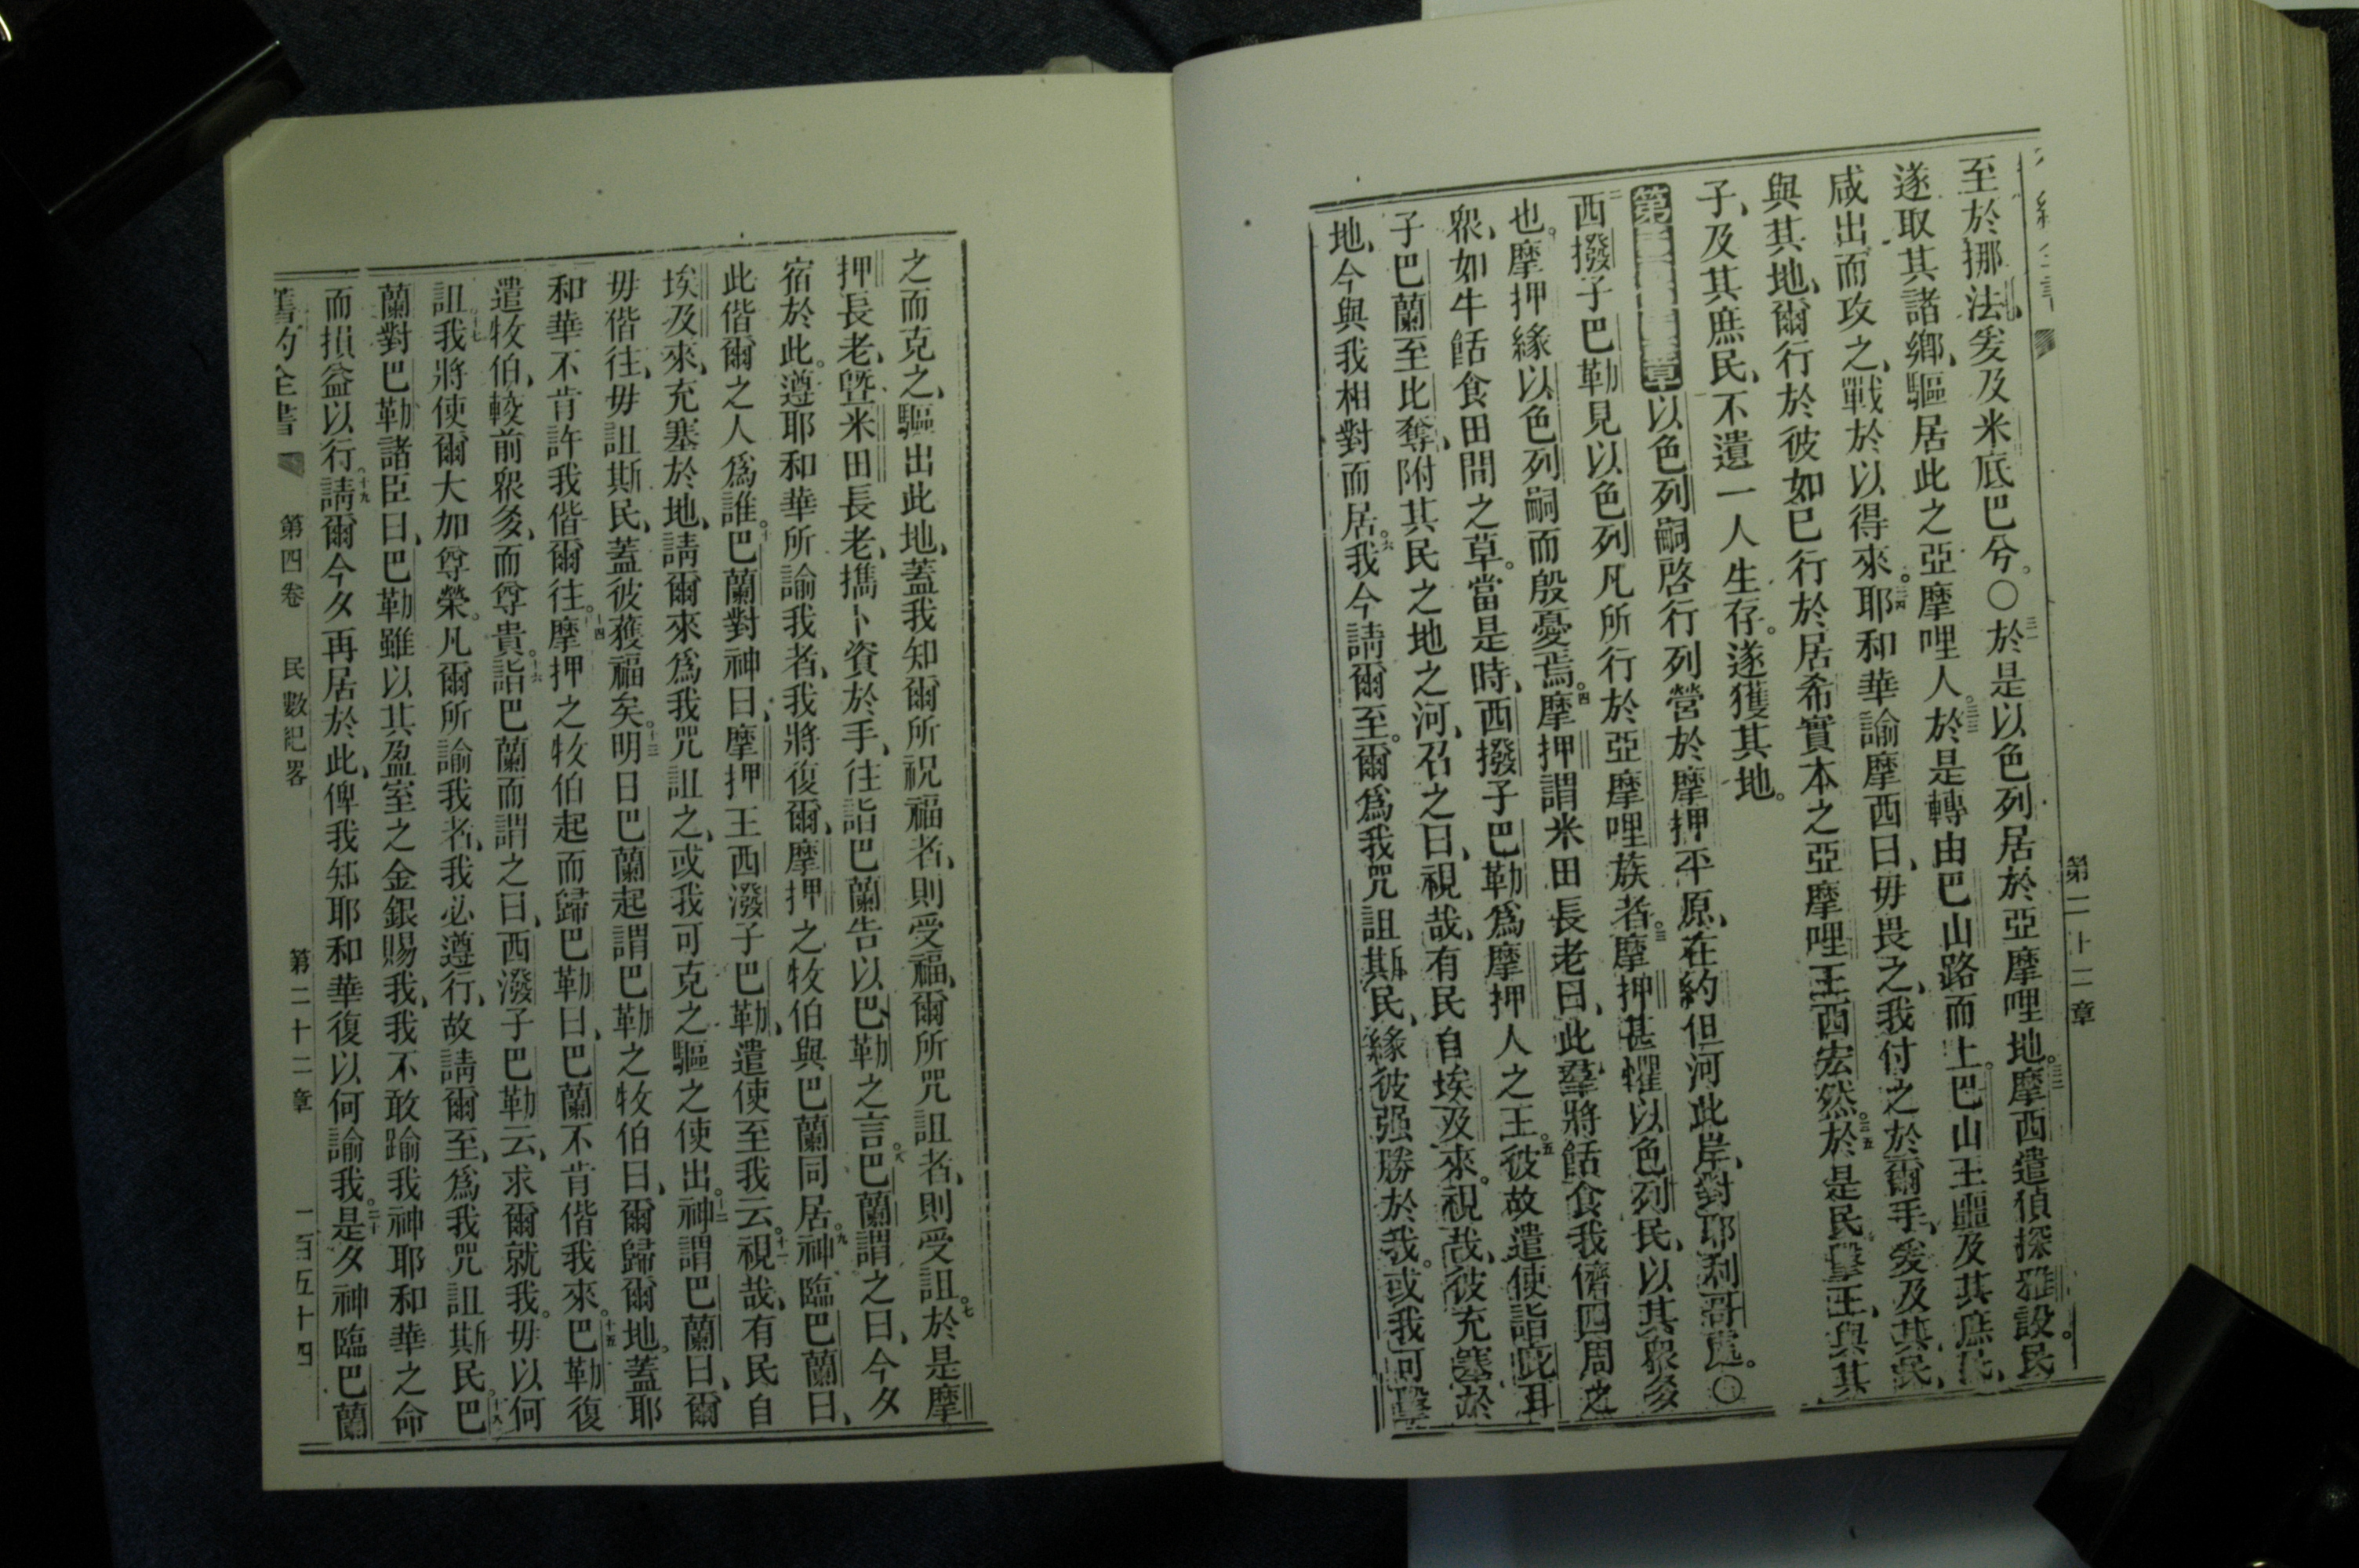 第二十二章
至於挪法、爰及米底巴兮。○三一於是以色列居於亞摩哩地。三二摩西遣偵探雅設民。
遂取其諸鄉、驅居此之亞摩哩人。三三於是轉由巴山路而上。巴山王噩及其庶民、
咸出而攻之、戰於以得來。三四耶和華諭摩西曰、毋畏之、我付之於爾手、爰及其民、
與其地、爾行於彼如已行於居希實本之亞摩哩王西宏然。三五於是民擊王、與其
子、及其庶民、不遺一人生存。遂獲其地。
第二十二章以色列嗣啓行列營於摩押平原、在約但河此岸、對耶利哥處。○
二西撥子巴勒見以色列凡所行於亞摩哩族者。三摩押甚懼以色列民、以其眾多
也。摩押緣以色列嗣而殷憂焉。四摩押謂米田長老曰、此羣將餂食我儕四周之
眾、如牛餂食田間之草。當是時、西撥子巴勒為摩押人之王。五彼故遣使詣庇耳
子巴蘭至比奪、附其民之地之河、召之曰、視哉、有民自埃及來。視哉、彼充塞於
地、今與我相對而居。六我今請爾至。爾為我咒詛斯民、緣彼强勝於我。或我可擊
之而克之、驅出此地、蓋我知爾所祝福者、則受福、爾所咒詛者、則受詛。七於是摩
押長老、曁米田長老、攜卜資於手、往詣巴蘭告以巴勒之言。八巴蘭謂之曰、今夕
宿於此。遵耶和華所諭我者、我將復爾、摩押之牧伯與巴蘭同居。九神臨巴蘭曰、
此偕爾之人為誰。十巴蘭對神曰、摩押王西潑子巴勒、遣使至我云。十一視哉、有民自
埃及來、充塞於地、請爾來為我咒詛之、或我可克之驅之使出。十二神謂巴蘭曰、爾
毋偕往、毋詛斯民、蓋彼獲福矣。十三明日巴蘭起謂巴勒之牧伯曰、爾歸爾地。蓋耶
和華不肯許我偕爾往。十四摩押之牧伯起而歸巴勒曰、巴蘭不肯偕我來。十五巴勒復
遣牧伯、較前眾多、而尊貴。十六詣巴蘭而謂之曰、西潑子巴勒云、求爾就我。毋以何
詛。十七我將使爾大加尊榮。凡爾所諭我者、我必遵行、故請爾至、為我咒詛斯民。十八巴
蘭對巴勒諸臣曰、巴勒雖以其盈室之金銀賜我、我不敢踰我神耶和華之命
而損益以行。十九請爾今夕再居於此、俾我知耶和華復以何諭我。二十是夕神臨巴蘭
舊約全書 第四卷 民數紀畧 第二十二章 一百五十四